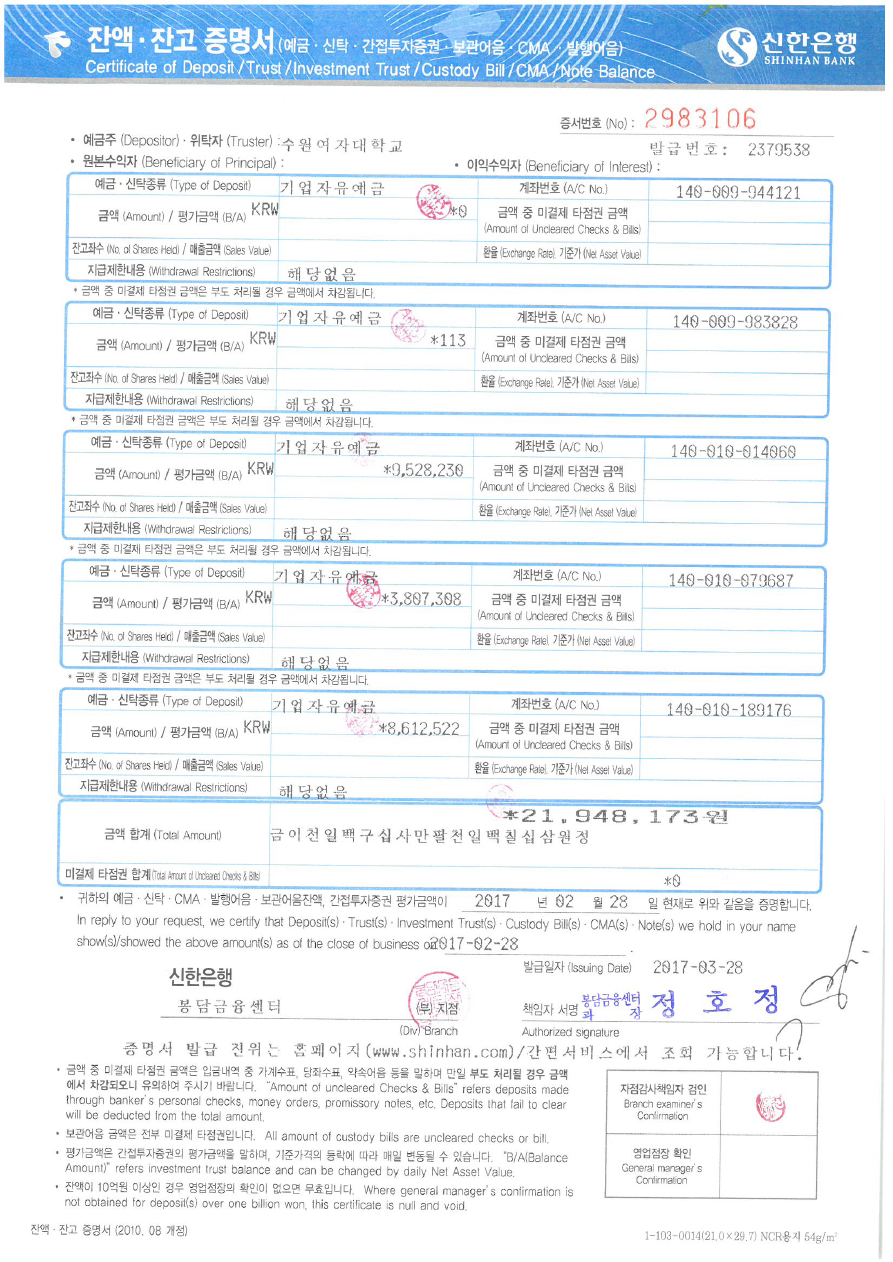 잔액·잔고 증명서(예금·신탁·간접투자증권·보관어음·CMA·발행어음)
Certificate of Deposit/Trust/Investment Trust/Custody Bill/CMA/Note Balance
신한은행
SHINHAN BANK
증서번호 (No) : 2983106
• 예금주 (Depositor)·위탁자 (Truster) : 수원여자대학교
발급번호: 2379538
• 원본수익자 (Beneficiary of Principal) :
• 이익수익자 (Beneficiary of Interest) :
예금·신탁종류 (Type of Deposit) 기업자유예금 계좌번호 (A/C No.) 140-009-944121
금액 (Amount) / 평가금액 (B/A) KRW *0 금액 중 미결제 타점권 금액
(Amount of Uncleared Checks & Bills)
잔고좌수 (No. of Shares Held) / 매출금액 (Sales Value) 환율 (Exchange Rate), 기준가 (Net Asset Value)
지급제한내용 (Withdrawal Restrictions) 해당없음
* 금액 중 미결제 타점권 금액은 부도 처리될 경우 금액에서 차감됩니다.
예금·신탁종류 (Type of Deposit) 기업자유예금 계좌번호 (A/C No.) 140-009-983828
금액 (Amount) / 평가금액 (B/A) KRW *113 금액 중 미결제 타점권 금액
(Amount of Uncleared Checks & Bills)
잔고좌수 (No. of Shares Held) / 매출금액 (Sales Value) 환율 (Exchange Rate), 기준가 (Net Asset Value)
지급제한내용 (Withdrawal Restrictions) 해당없음
* 금액 중 미결제 타점권 금액은 부도 처리될 경우 금액에서 차감됩니다.
예금·신탁종류 (Type of Deposit) 기업자유예금 계좌번호 (A/C No.) 140-010-014060
금액 (Amount) / 평가금액 (B/A) KRW *9,528,230 금액 중 미결제 타점권 금액
(Amount of Uncleared Checks & Bills)
잔고좌수 (No. of Shares Held) / 매출금액 (Sales Value) 환율 (Exchange Rate), 기준가 (Net Asset Value)
지급제한내용 (Withdrawal Restrictions) 해당없음
* 금액 중 미결제 타점권 금액은 부도 처리될 경우 금액에서 차감됩니다.
예금·신탁종류 (Type of Deposit) 기업자유예금 계좌번호 (A/C No.) 140-010-079687
금액 (Amount) / 평가금액 (B/A) KRW *3,807,308 금액 중 미결제 타점권 금액
(Amount of Uncleared Checks & Bills)
잔고좌수 (No. of Shares Held) / 매출금액 (Sales Value) 환율 (Exchange Rate), 기준가 (Net Asset Value)
지급제한내용 (Withdrawal Restrictions) 해당없음
* 금액 중 미결제 타점권 금액은 부도 처리될 경우 금액에서 차감됩니다.
예금·신탁종류 (Type of Deposit) 기업자유예금 계좌번호 (A/C No.) 140-010-189176
금액 (Amount) / 평가금액 (B/A) KRW *8,612,522 금액 중 미결제 타점권 금액
(Amount of Uncleared Checks & Bills)
잔고좌수 (No. of Shares Held) / 매출금액 (Sales Value) 환율 (Exchange Rate), 기준가 (Net Asset Value)
지급제한내용 (Withdrawal Restrictions) 해당없음
*21,948,173원
금액 합계 (Total Amount) 금이천일백구십사만팔천일백칠십삼원정
미결제 타점권 합계(Total Amount of Uncleared Checks & Bills) *0
• 귀하의 예금·신탁·CMA·발행어음·보관어음잔액, 간접투자증권 평가금액이 2017 년 02 월 28 일 현재로 위와 같음을 증명합니다.
In reply to your request, we certify that Deposit(s)·Trust(s)·Investment Trust(s)·Custody Bill(s)·CMA(s)·Note(s) we hold in your name
show(s)/showed the above amount(s) as of the close of business on 2017-02-28 .
신한은행
발급일자 (Issuing Date) 2017-03-28
봉담금융센터 (부) 지점
책임자 서명 봉담금융센터 과 장 정 호 정
(Div) Branch
Authorized signature
증명서 발급 진위는 홈페이지(www.shinhan.com)/간편서비스에서 조회 가능합니다.
• 금액 중 미결제 타점권 금액은 입금내역 중 가계수표, 당좌수표, 약속어음 등을 말하며 만일 부도 처리될 경우 금액
에서 차감되오니 유의하여 주시기 바랍니다. "Amount of uncleared Checks & Bills" refers deposits made
through banker's personal checks, money orders, promissory notes, etc. Deposits that fail to clear
will be deducted from the total amount.
• 보관어음 금액은 전부 미결제 타점권입니다. All amount of custody bills are uncleared checks or bill.
• 평가금액은 간접투자증권의 평가금액을 말하며, 기준가격의 등락에 따라 매일 변동될 수 있습니다. "B/A(Balance
Amount)" refers investment trust balance and can be changed by daily Net Asset Value.
• 잔액이 10억원 이상인 경우 영업점장의 확인이 없으면 무효입니다. Where general manager's confirmation is
not obtained for deposit(s) over one billion won, this certificate is null and void.
자점감사책임자 검인
Branch examiner's
Confirmation
영업점장 확인
General manager's
Confirmation
잔액·잔고 증명서 (2010. 08 개정)
1-103-0014(21.0×29.7) NCR용지 54g/m²